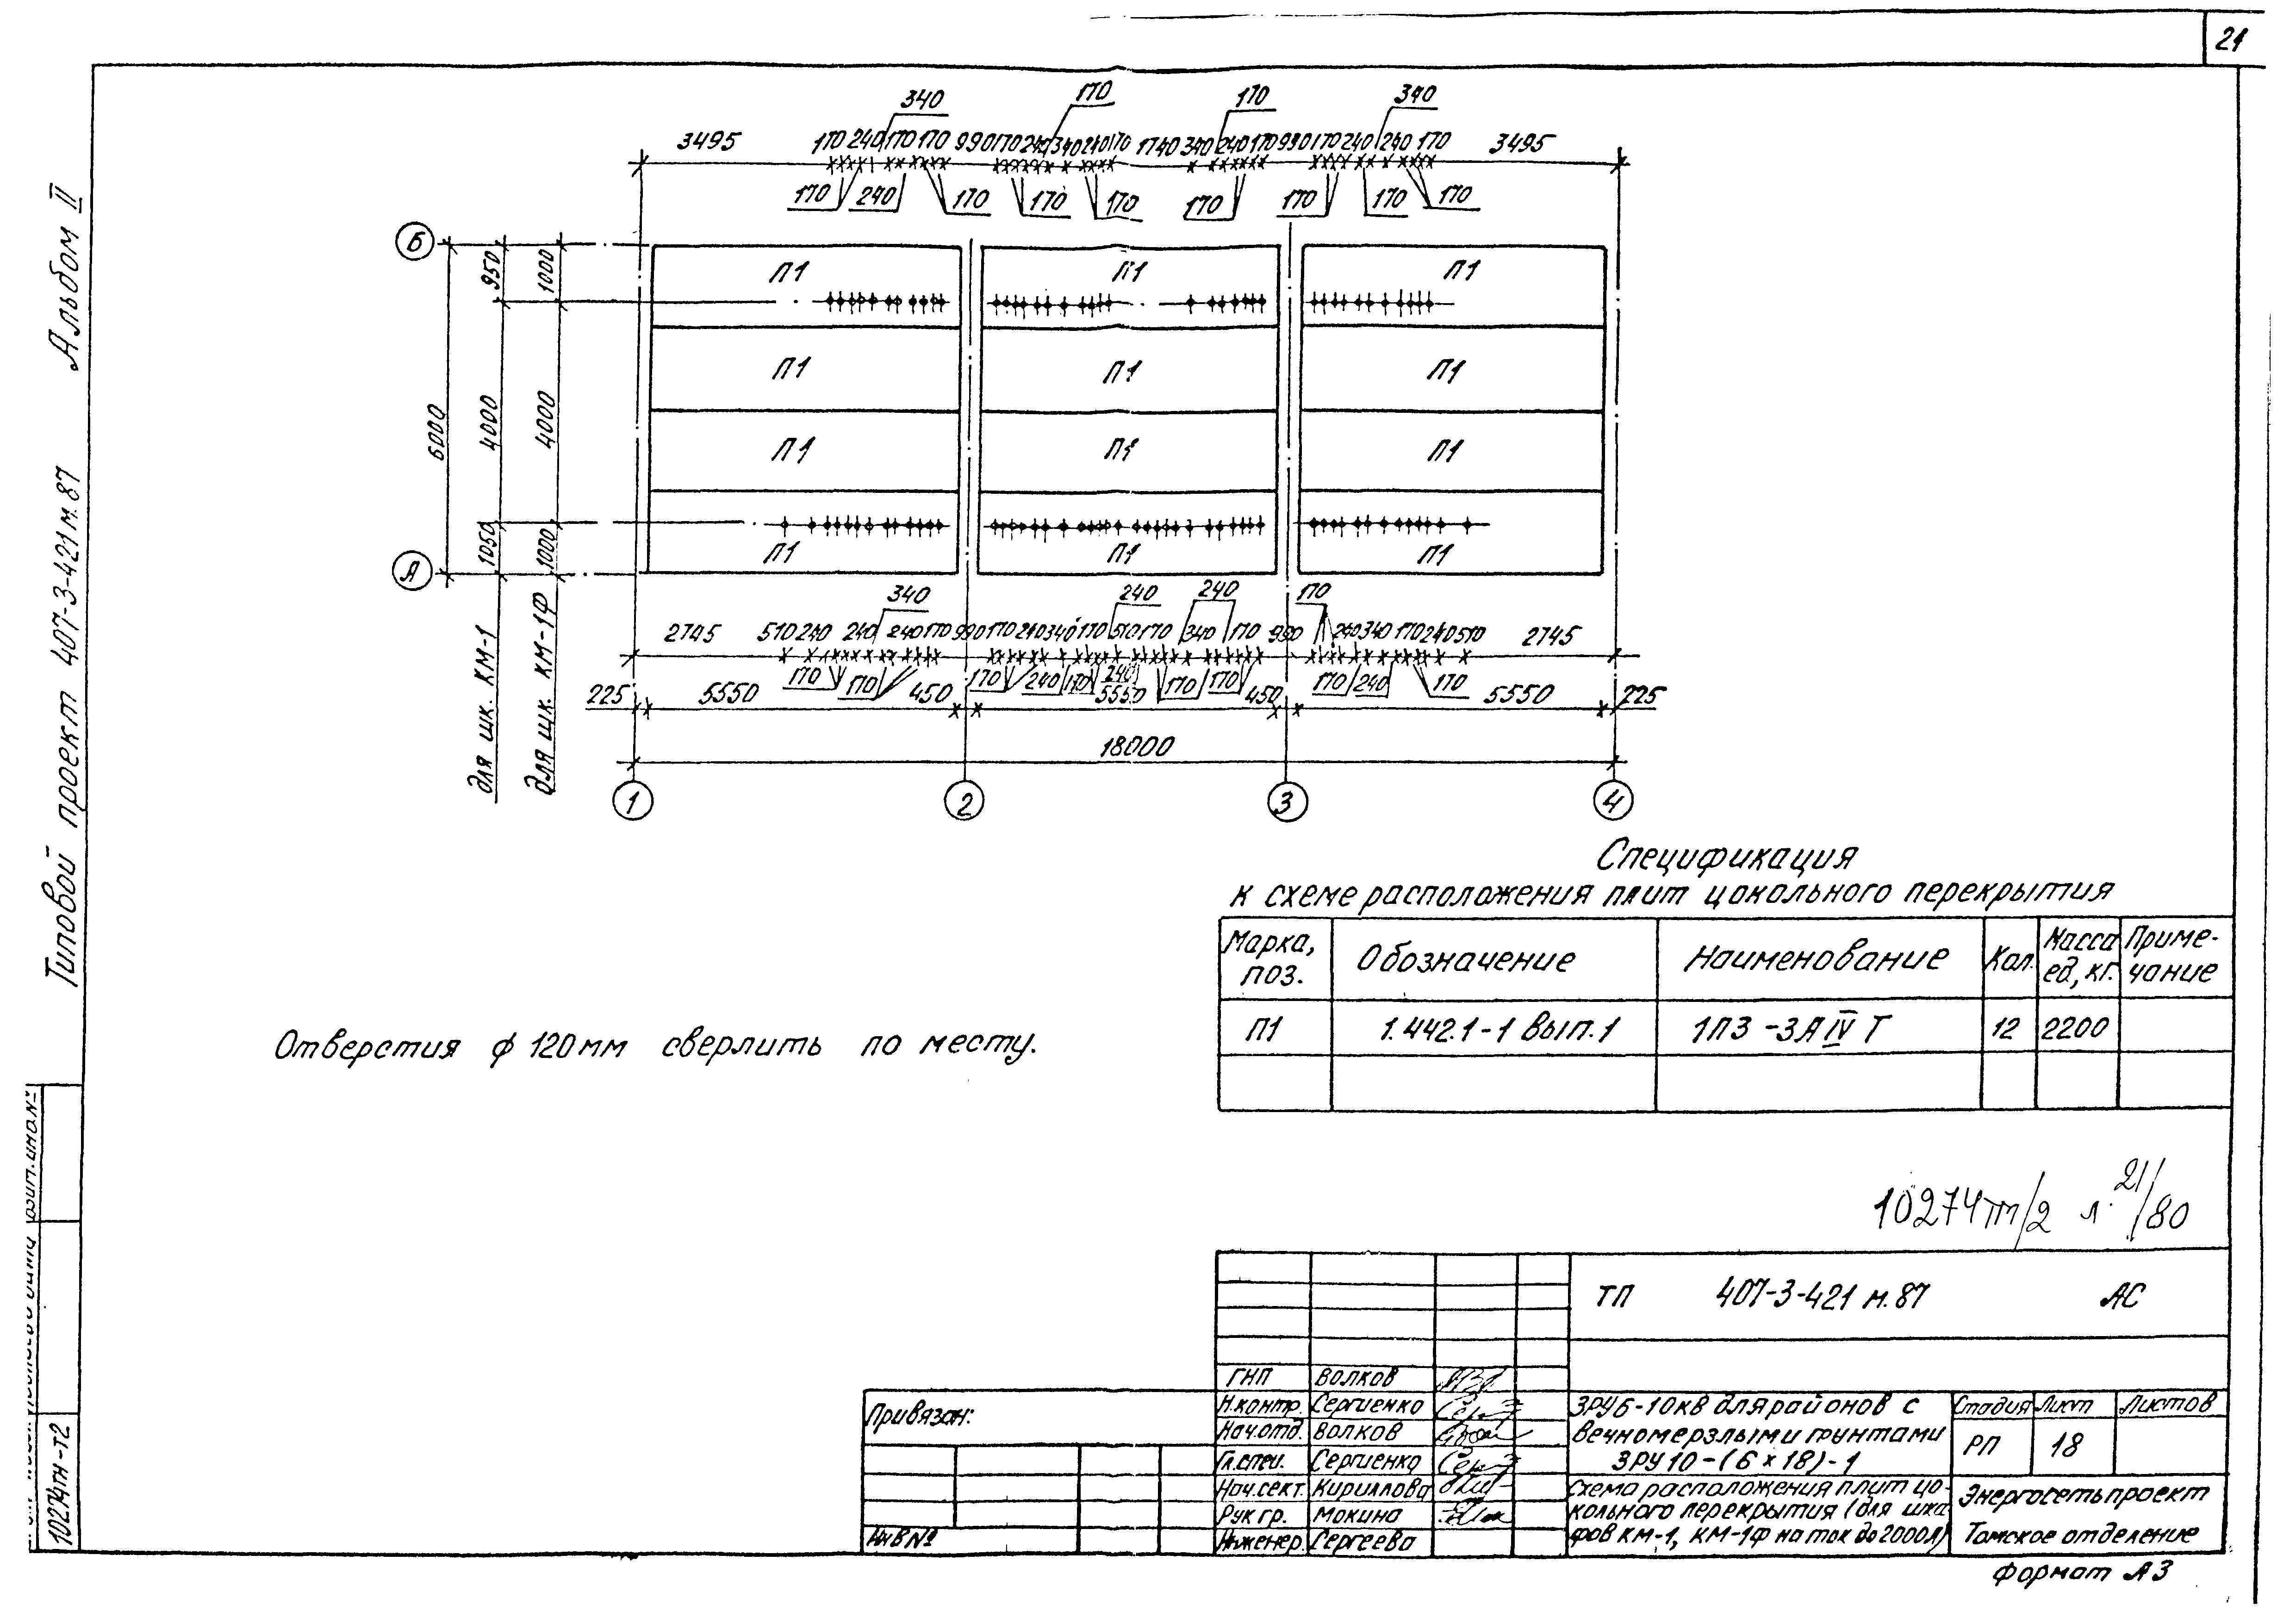 21
Альбом II
Типовой проект 407-3-421м.87
340 170 170 340
3495 170 240 170 170 990 170 240 340 240 170 1740 340 240 170 990 170 240 240 170 3495
170 240 170 170 170 170 170 170 170
Б
950 1000
П1 П1 П1
П1 П1 П1
6000 4000 4000
П1 П1 П1
1050 1000
П1 П1 П1
А
для шк. КМ-1
для шк. КМ-1Ф
340 240 240 170
2745 510 240 240 240 170 990 170 240 340 170 510 170 340 170 990 240 340 170 240 510 2745
170 170 170 240 170 240 170 170 170 240 170
225 5550 450 5550 450 5550 225
18000
1 2 3 4
Спецификация
к схеме расположения плит цокольного перекрытия
Марка, поз. Обозначение Наименование Кол. Масса ед, кг. Приме-чание
П1 1.442.1-1 вып.1 1П3-3А IV Т 12 2200
Отверстия ф 120мм сверлить по месту.
10274тт/2 л. 21/80
ТП 407-3-421 м.87 АС
Привязан:
Инв №
ГНП Волков
Н.контр. Сергиенко
Нач.отд. Волков
Гл.спец. Сергиенко
Нач.сект. Кириллова
Рук гр. Мокина
Инженер. Сергеева
ЗРУ6-10кв для районов с
вечномерзлыми грунтами
ЗРУ10-(6х18)-1
Стадия Лист Листов
РП 18
Схема расположения плит цо-
кольного перекрытия (для шка
фов КМ-1, КМ-1Ф на ток до 2000А)
Энергосетьпроект
Томское отделение
Формат А3
взим.инв.№
10274тм-т2